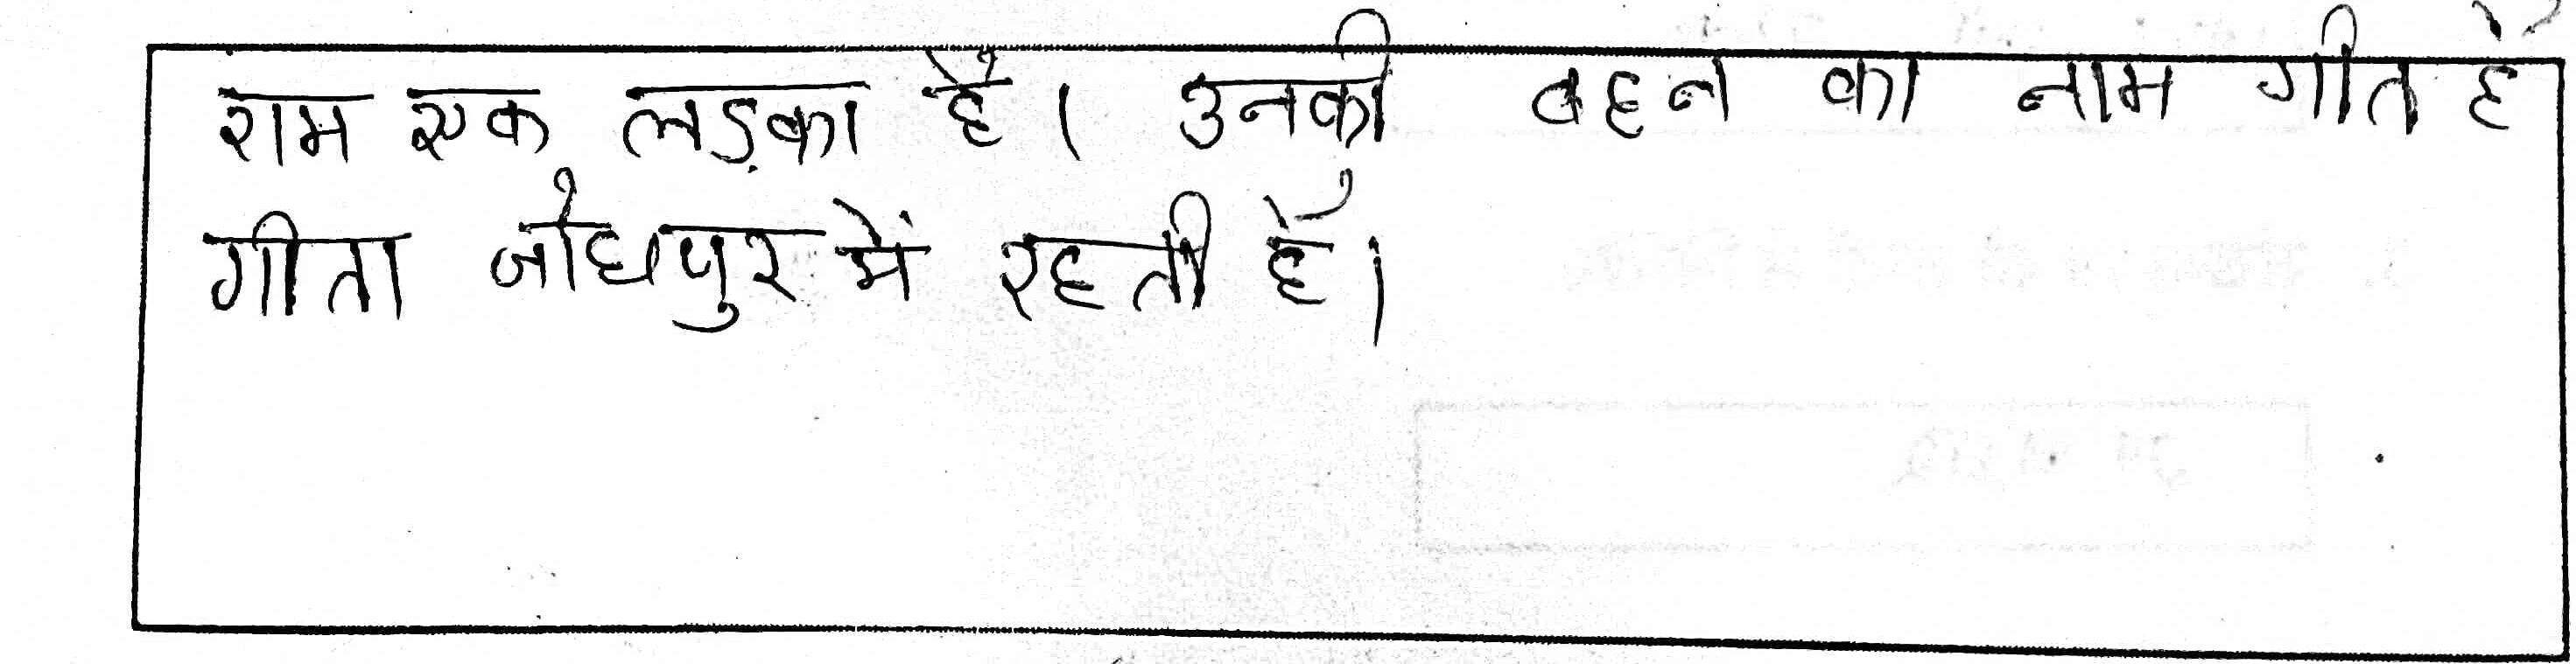 राम एक लड़का है। उनकी बहन का नाम गीत है
गीता जोधपुर में रहती है।